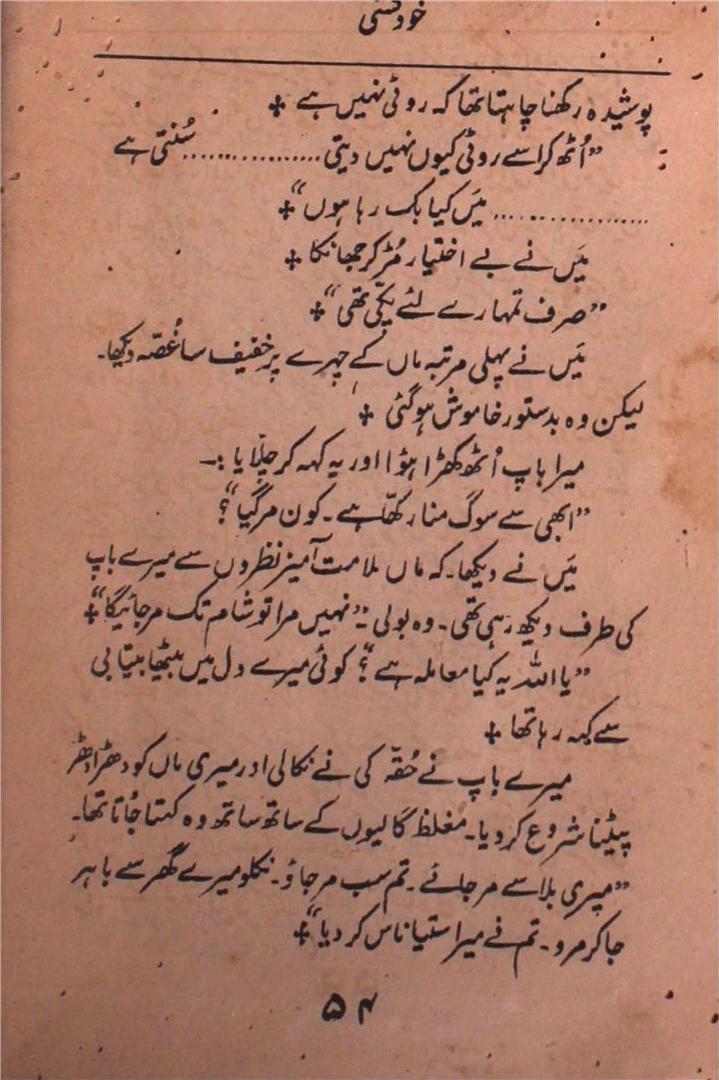 خودکشی
پوشیدہ رکھنا چاہتا تھا کہ روٹی نہیں ہے ✤
”اُٹھ کر اسے روٹی کیوں نہیں دیتی ................. سُنتی ہے
.................. مَیں کیا بک رہا ہوں“ ✤
مَیں نے بے اختیار مُڑ کر جھانکا ✤
”صرف تمہارے لئے پکّی تھی“ ✤
مَیں نے پہلی مرتبہ ماں کے چہرے پر خفیف سا غُصّہ دیکھا۔
لیکن وہ بدستور خاموش ہو گئی ✤
میرا باپ اُٹھ کھڑا ہؤا اور یہ کہہ کر چلّایا :۔
”ابھی سے سوگ منا رکھّا ہے۔ کون مر گیا“؟
مَیں نے دیکھا۔ کہ ماں ملامت آمیز نظروں سے میرے باپ
کی طرف دیکھ رہی تھی۔ وہ بولی ”نہیں مرا تو شام تک مر جائیگا“ ✤
”یا اللہ یہ کیا معاملہ ہے“؟ کوئی میرے دل میں بیٹھا بیتابی
سے کہہ رہا تھا ✤
میرے باپ نے حُقّہ کی نے نکالی اور میری ماں کو دھڑا دھڑ
پیٹنا شروع کر دیا۔ مغلظ گالیوں کے ساتھ ساتھ وہ کہتا جاتا تھا۔
”میری بلا سے مر جائے۔ تم سب مر جاؤ۔ نکلو میرے گھر سے باہر
جا کر مرو۔ تم نے میرا ستیاناس کر دیا“ ✤
۵۴